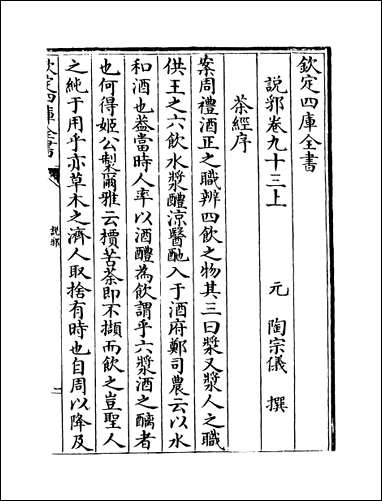 欽定四庫全書
說郛卷九十三上
元 陶宗儀 撰
茶經序
案周禮酒正之職辨四飲之物其三曰漿又漿人之職
供王之六飲水漿醴涼醫酏入于酒府鄭司農云以水
和酒也蓋當時人率以酒醴為飲謂乎六漿酒之醨者
也何得姬公製爾雅云檟苦荼即不擷而飲之豈聖人
之純于用乎亦草木之濟人取捨有時也自周以降及
欽定四庫全書
說郛